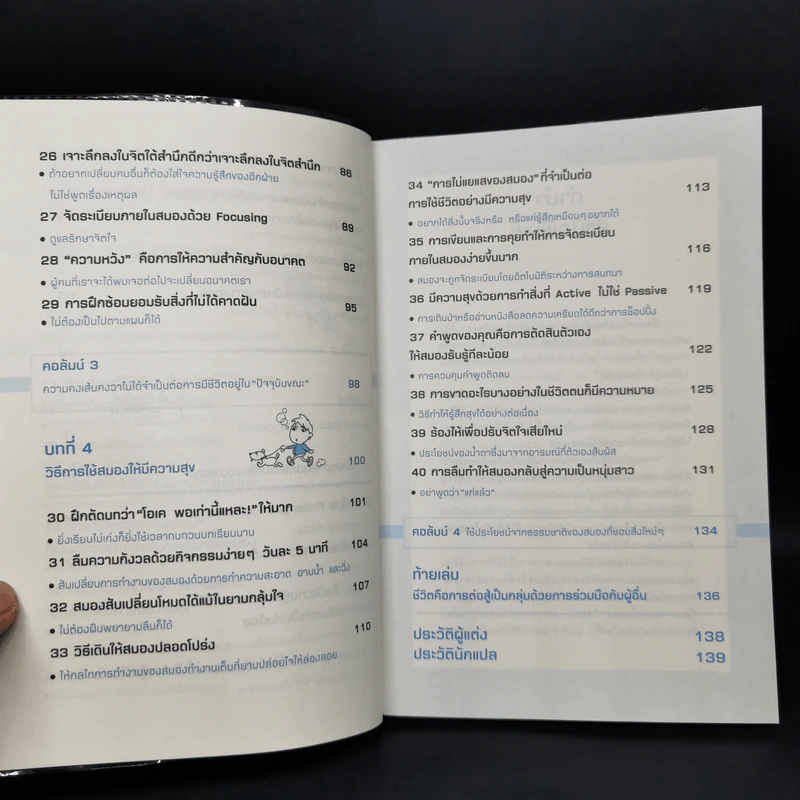 26 เจาะลึกลงในจิตใต้สำนึกดีกว่าเจาะลึกลงในจิตสำนึก 86
• ถ้าอยากเปลี่ยนคนอื่นก็ต้องใส่ใจความรู้สึกของอีกฝ่าย
ไม่ใช่พูดเรื่องเหตุผล
27 จัดระเบียบภายในสมองด้วย Focusing 89
• ดูแลรักษาจิตใจ
28 “ความหวัง” คือการให้ความสำคัญกับอนาคต 92
• ผู้คนที่เราจะได้พบเจอต่อไปจะเปลี่ยนอนาคตเรา
29 การฝึกซ้อมยอมรับสิ่งที่ไม่ได้คาดฝัน 95
• ไม่ต้องเป็นไปตามแผนก็ได้
คอลัมน์ 3
ความคงเส้นคงวาไม่ได้จำเป็นต่อการมีชีวิตอยู่ใน “ปัจจุบันขณะ” 98
บทที่ 4
วิธีการใช้สมองให้มีความสุข 100
30 ฝึกตัดบทว่า “โอเค พอเท่านี้แหละ!” ให้มาก 101
• ยิ่งเรียนไม่เก่งก็ยิ่งใช้เวลาทบทวนบทเรียนนาน
31 ลืมความกังวลด้วยกิจกรรมง่ายๆ วันละ 5 นาที 104
• สับเปลี่ยนการทำงานของสมองด้วยการทำความสะอาด อาบน้ำ และวิ่ง
32 สมองสับเปลี่ยนโหมดได้แม้ในยามกลุ้มใจ 107
• ไม่ต้องฝืนพยายามลืมก็ได้
33 วิธีเดินให้สมองปลอดโปร่ง 110
• ให้กลไกการทำงานของสมองทำงานเต็มที่ยามปล่อยใจให้ล่องลอย
34 “การไม่แยแสของสมอง” ที่จำเป็นต่อ
การใช้ชีวิตอย่างมีความสุข 113
• อยากได้สิ่งนั้นจริงหรือ หรือแค่รู้สึกเหมือนๆ อยากได้
35 การเขียนและการคุยทำให้การจัดระเบียบ
ภายในสมองง่ายขึ้นมาก 116
• สมองจะถูกจัดระเบียบโดยอัตโนมัติระหว่างการสนทนา
36 มีความสุขด้วยการทำสิ่งที่ Active ไม่ใช่ Passive 119
• การเดินป่าหรืออ่านหนังสือลดความเครียดได้ดีกว่าการช็อปปิ้ง
37 คำพูดของคุณคือการตัดสินตัวเอง
ให้สมองรับรู้ทีละน้อย 122
• การควบคุมคำพูดติดลบ
38 การขาดอะไรบางอย่างในชีวิตตนก็มีความหมาย 125
• วิธีทำให้รู้สึกสุขได้อย่างต่อเนื่อง
39 ร้องไห้เพื่อปรับจิตใจเสียใหม่ 128
• ประโยชน์ของน้ำตาซึ่งมาจากอารมณ์ที่ตัวเองสัมผัส
40 การลืมทำให้สมองกลับสู่ความเป็นหนุ่มสาว 131
• อย่าพูดว่า “แก่แล้ว”
คอลัมน์ 4 ใช้ประโยชน์จากธรรมชาติของสมองที่ชอบสิ่งใหม่ๆ 134
ท้ายเล่ม
ชีวิตคือการต่อสู้เป็นกลุ่มด้วยการร่วมมือกับผู้อื่น 136
ประวัติผู้แต่ง 138
ประวัตินักแปล 139